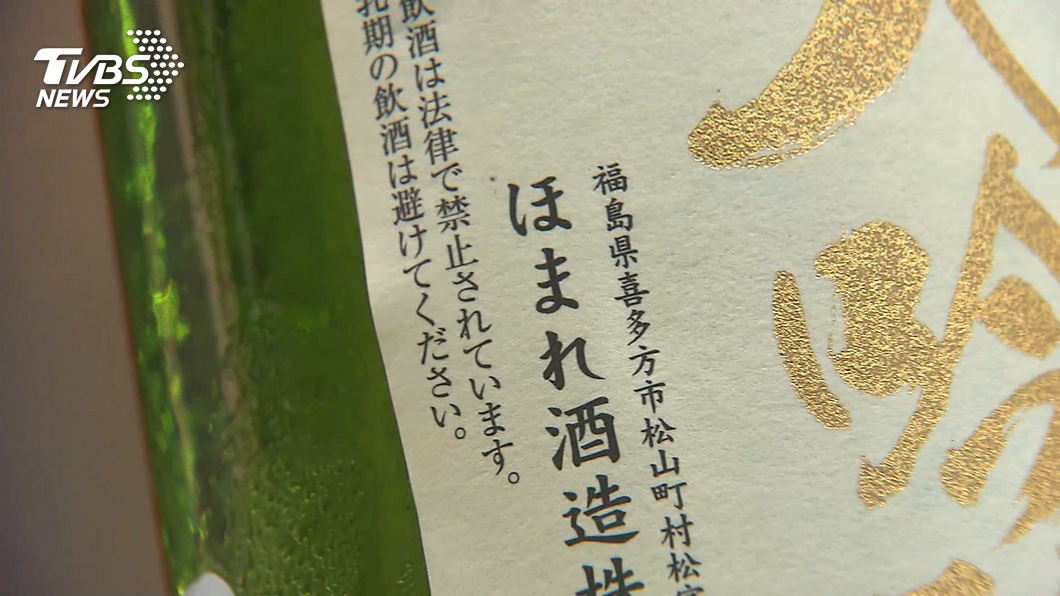 TVBS
NEWS
吟
福島県喜多方市松山町村松字
ほまれ酒造株
飲酒は法律で禁止されています。
乳期の飲酒は避けてください。